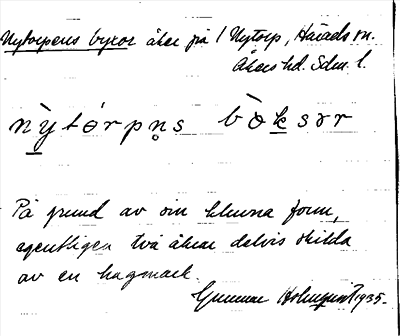 Nytorpens byxor åker på 1 Nytorp, Härads sn.
Åkers hd. Sdm. l.
nỳtórpn̥s bòksər
På grund av sin kluvna form,
egentligen två åkrar delvis skilda
av en hagmark.
Gunnar Holmqvist 1935.